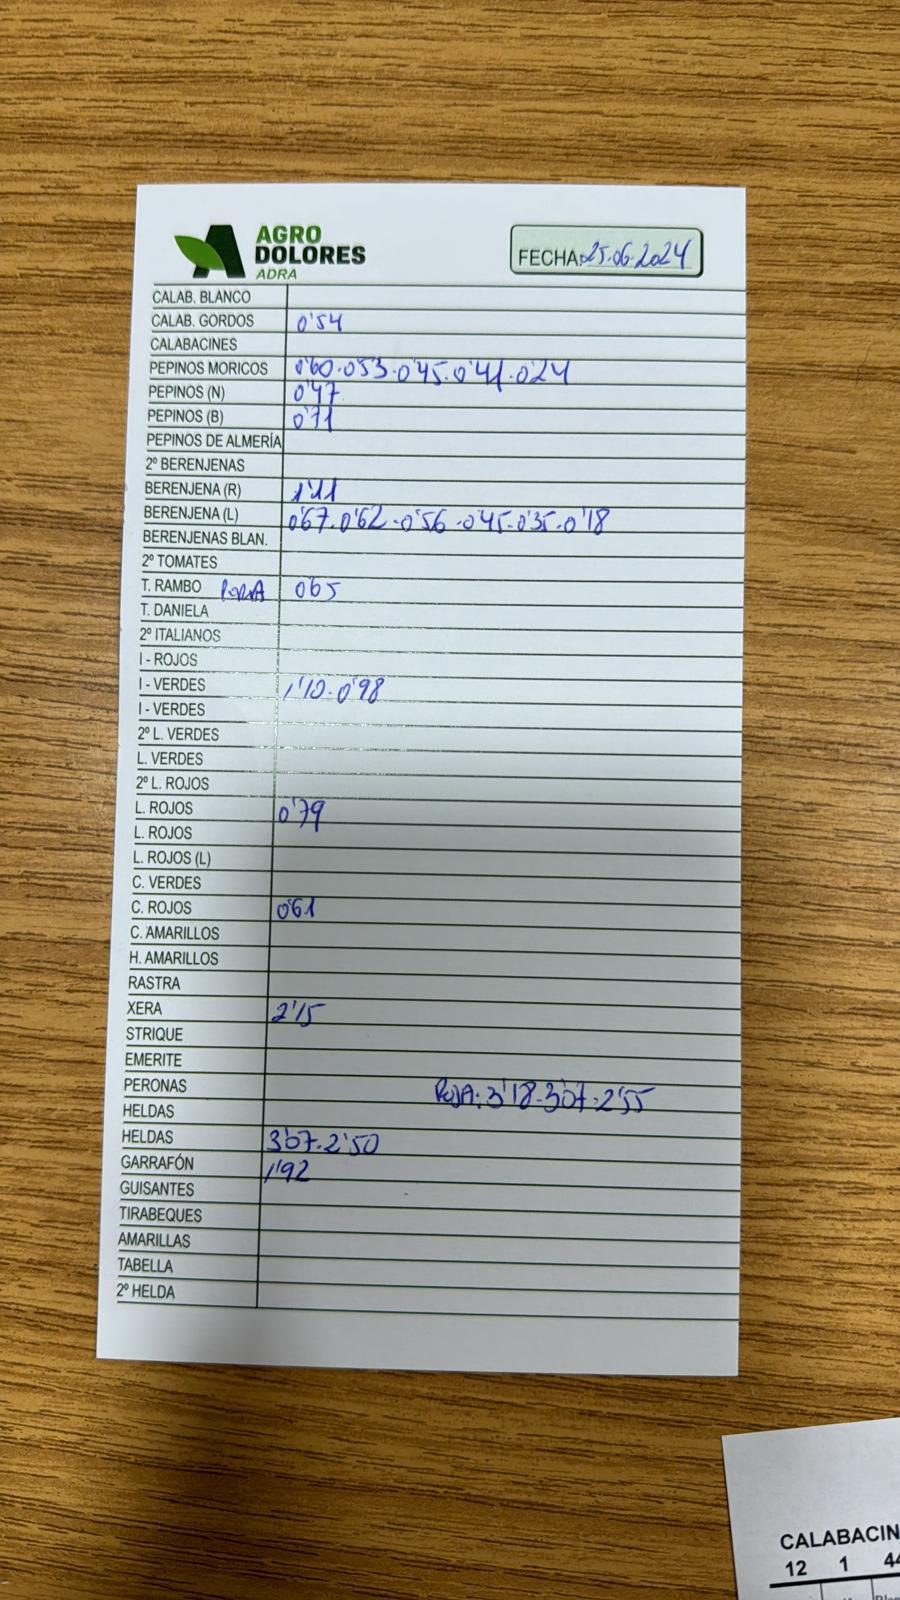 AGRO
DOLORES
ADRA
FECHA: 25.06.2024
CALAB. BLANCO
CALAB. GORDOS 0'54
CALABACINES
PEPINOS MORICOS 0'60.0'53.0'45.0'41.0'24
PEPINOS (N) 0'47
PEPINOS (B) 0'71
PEPINOS DE ALMERÍA
2º BERENJENAS
BERENJENA (R) 1'11
BERENJENA (L) 0'67.0'62-0'56-0'45.0'35.0'18
BERENJENAS BLAN.
2º TOMATES
T. RAMBO 0'65
T. DANIELA
2º ITALIANOS
I - ROJOS
I - VERDES 1'10.0'98
I - VERDES
2º L. VERDES
L. VERDES
2º L. ROJOS
L. ROJOS 0'79
L. ROJOS
L. ROJOS (L)
C. VERDES
C. ROJOS 0'61
C. AMARILLOS
H. AMARILLOS
RASTRA
XERA 2'15
STRIQUE
EMERITE
PERONAS ROJA: 3'18.3'07.2'55
HELDAS
HELDAS 3'07.2'50
GARRAFÓN 1'92
GUISANTES
TIRABEQUES
AMARILLAS
TABELLA
2º HELDA
CALABACIN
12 1 44